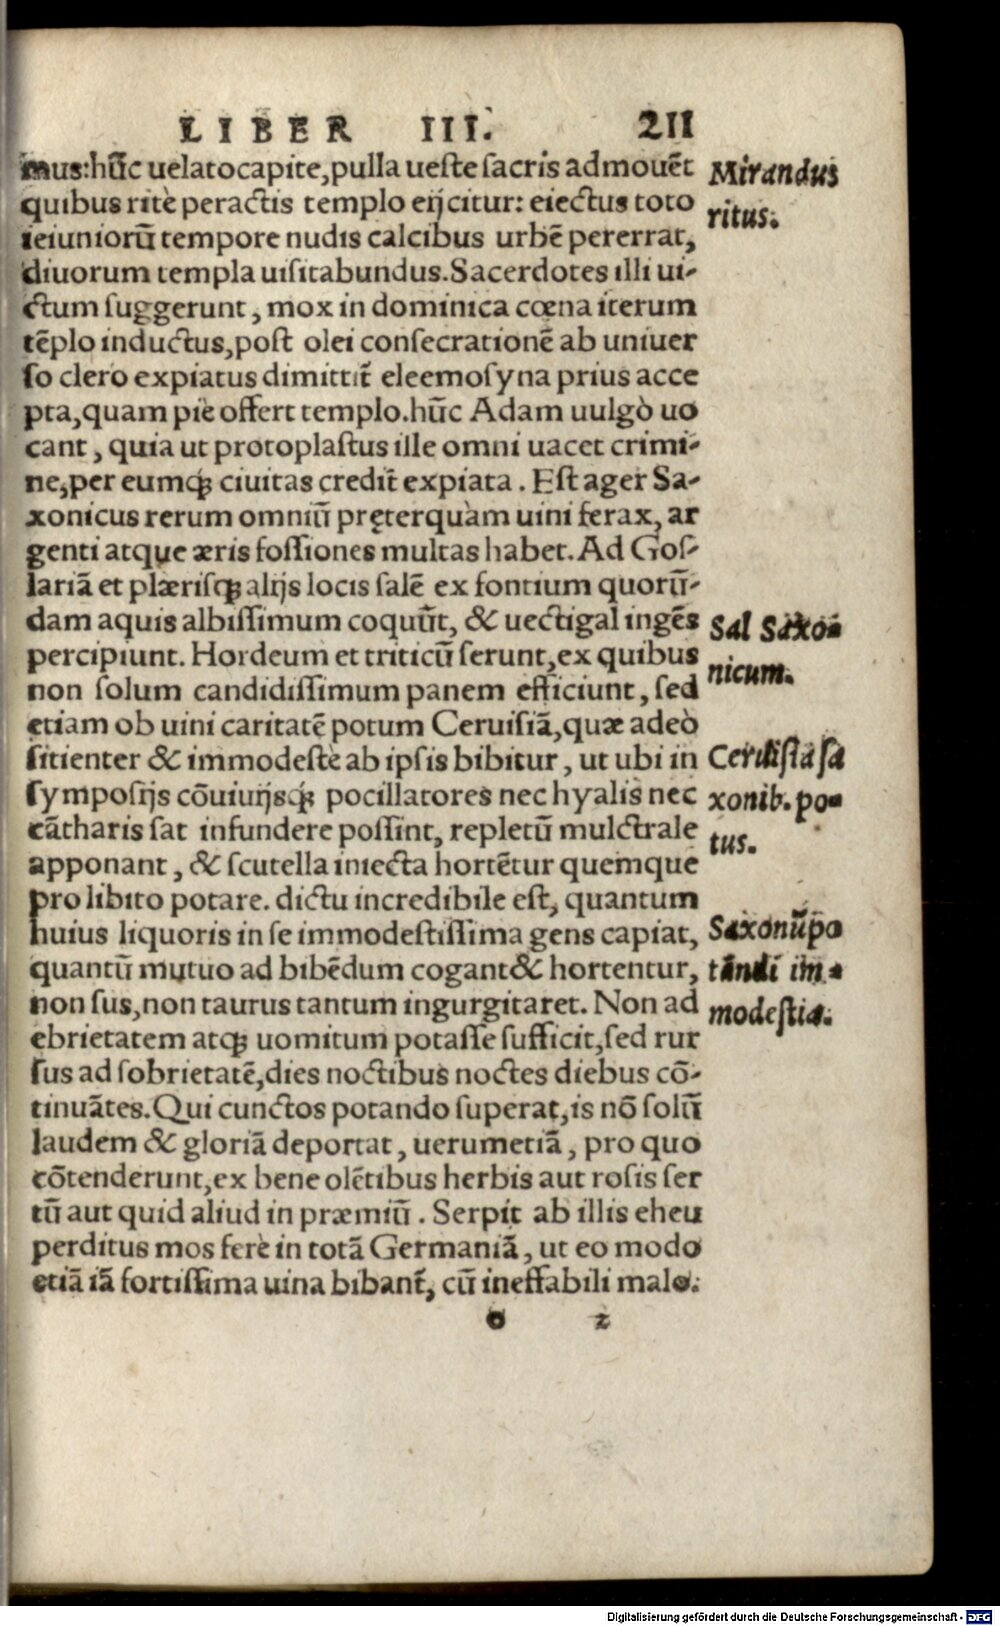 LIBER III. 211
mus:hũc uelato capite, pulla ueste sacris admouẽt
quibus ritè peractis templo eijcitur: eiectus toto
ieiuniorũ tempore nudis calcibus urbẽ pererrat,
diuorum templa uisitabundus. Sacerdotes illi ui-
ctum suggerunt, mox in dominica cœna iterum
tẽplo inductus, post olei consecrationẽ ab uniuer
so clero expiatus dimittit̃ eleemosyna prius acce
pta, quam piè offert templo. hũc Adam uulgò uo
cant, quia ut protoplastus ille omni uacet crimi-
ne, per eumq́ꝫ ciuitas credit̃ expiata. Est ager Sa-
xonicus rerum omniũ pręterquàm uini ferax, ar
genti atque æris fossiones multas habet. Ad Gos-
lariã et plærisq́ꝫ alijs locis salẽ ex fontium quorũ-
dam aquis albissimum coquũt, & uectigal ingẽs
percipiunt. Hordeum et triticũ serunt, ex quibus
non solum candidissimum panem efficiunt, sed
etiam ob uini caritatẽ potum Ceruisiã, quæ adeò
sitienter & immodestè ab ipsis bibitur, ut ubi in
symposijs cõuiuijsq́ꝫ pocillatores nec hyalis nec
cãtharis sat infundere possint, repletũ mulctrale
apponant, & scutella iniecta hortẽtur quemque
pro libito potare. dictu incredibile est, quantum
huius liquoris in se immodestissima gens capiat,
quantũ mutuo ad bibẽdum cogant & hortentur,
non sus, non taurus tantum ingurgitaret. Non ad
ebrietatem atq́ꝫ uomitum potasse sufficit, sed rur
sus ad sobrietatẽ, dies noctibus noctes diebus cõ-
tinuãtes. Qui cunctos potando superat, is nõ solũ
laudem & gloriã deportat, uerumetiã, pro quo
cõtenderunt, ex bene olẽtibus herbis aut rosis ser
tũ aut quid aliud in præmiũ. Serpit ab illis eheu
perditus mos ferè in totã Germaniã, ut eo modo
etiã iã fortissima uina bibant̃, cũ ineffabili malo.
o 2
Mirandus
ritus.
Sal Saxo-
nicum.
Ceruisia sa
xonib. po-
tus.
Saxonũ po
tãndi im-
modestia.
Digitalisierung gefördert durch die Deutsche Forschungsgemeinschaft - DFG